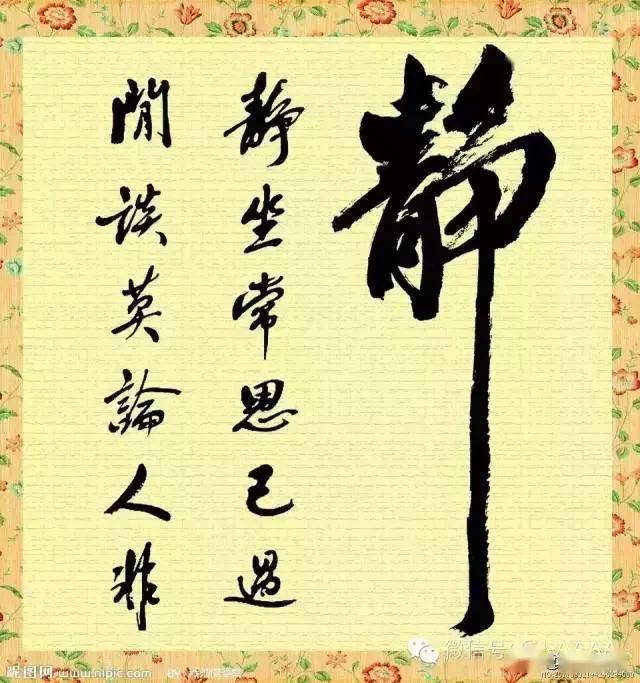 静
静坐常思己過
閒談莫論人非
微信号
昵图网 www.nipic.com BY: